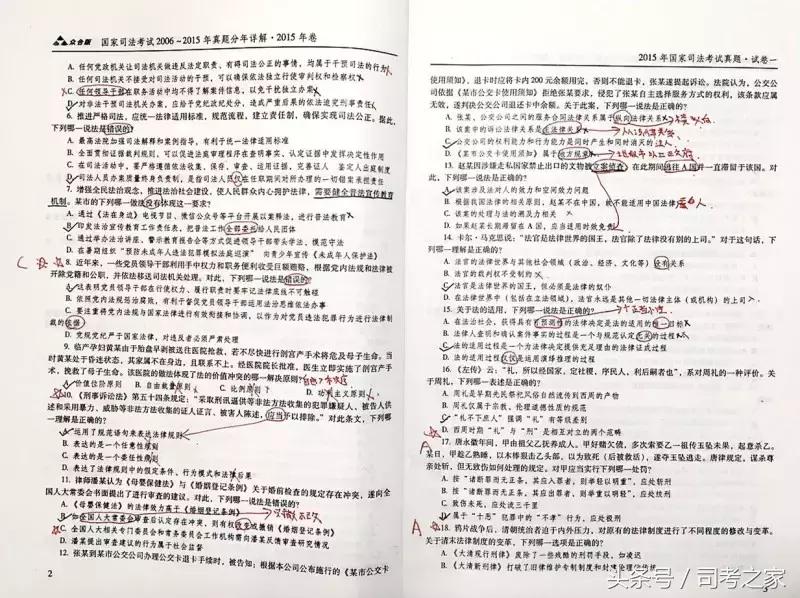 众合版 国家司法考试2006~2015年真题分年详解·2015年卷
A. 任何党政机关让司法机关做违反法定职责、有碍司法公正的事情，均属于干预司法的行为
B. 任何司法机关不接受对司法活动的干预，可以确保依法独立行使审判权和检察权
C. 任何领导干部在职务活动中均不得了解案件信息，以免干扰独立办案
D. 对非法干预司法机关办案，应给予党纪政纪处分，造成严重后果的依法追究刑事责任
6. 推进严格司法，应统一法律适用标准，规范流程，建立责任制，确保实现司法公正。据此，
下列哪一说法是错误的？
A. 最高法院加强司法解释和案例指导，有利于统一法律适用标准
B. 全面贯彻证据裁判规则，可以促进法庭审理程序在查明事实、认定证据中发挥决定性作用
C. 在司法活动中，要严格遵循依法收集、保存、审查、运用证据，完善证人、鉴定人出庭制度
D. 司法人员办案质量终身负责制，是指司法人员仅在任职期间对所办理的一切错案承担责任
7. 增强全民法治观念，推进法治社会建设，使人民群众内心拥护法律，需要健全普法宣传教育
机制。某市的下列哪一做法没有体现这一要求？
A. 通过《法在身边》电视节目、微信公众号等平台开展以案释法，进行普法教育
B. 印发法治宣传教育工作责任表，把普法工作全部委托给人民团体
C. 通过举办法治讲座、警示教育报告会等方式促进领导干部带头学法、模范守法
D. 在暑期组织“预防未成年人违法犯罪模拟法庭巡演”，向青少年宣传《未成年人保护法》
8. 近年来，一些党员领导干部利用手中权力和职务便利收受巨额贿赂，根据党内法规和法律被
开除党籍和公职，并依法移送司法机关处理。对此，下列哪一说法是错误的？
A. 这表明党员领导干部在行使权力、履行职责时要牢记法律底线不可触碰
B. 依照党内法规惩治腐败，有利于督促党员领导干部运用法治思维依法办事
C. 要注重将党内法规与国家法律进行有效衔接和协调，以作为对党员违法犯罪行为进行法律制
裁的依据
D. 党规党纪严于国家法律，对违反者必须严肃处理
9. 临产孕妇黄某由于胎盘早剥被送往医院抢救，若不尽快进行剖宫产手术将危及母子生命。当
时黄某处于昏迷状态，其家属不在身边，且联系不上。经医院院长批准，医生立即实施了剖宫产手
术，挽救了母子生命。该医院的做法体现了法的价值冲突的哪一解决原则？
A. 价值位阶原则 B. 自由裁量原则 C. 比例原则 D. 功利主义原则
10. 《刑事诉讼法》第五十四条规定：“采取刑讯逼供等非法方法收集的犯罪嫌疑人、被告人供
述和采用暴力、威胁等非法方法收集的证人证言、被害人陈述，应当予以排除。”对此条文，下列哪
一理解是正确的？
A. 运用了规范语句来表达法律规则
B. 表达的是一个任意性规则
C. 表达的是一个委任性规则
D. 表达了法律规则中的假定条件、行为模式和法律后果
11. 律师潘某认为《母婴保健法》与《婚姻登记条例》关于婚前检查的规定存在冲突，遂向全
国人大常委会书面提出了进行审查的建议。对此，下列哪一说法是错误的？
A. 《母婴保健法》的法律效力高于《婚姻登记条例》
B. 如全国人大常委会审查后认定存在冲突，则有权改变或撤销《婚姻登记条例》
C. 全国人大相关专门委员会和常务委员会工作机构需向潘某反馈审查研究情况
D. 潘某提出审查建议的行为属于社会监督
12. 张某到某市公交公司办理公交卡退卡手续时，被告知：根据本公司公布施行的《某市公交卡
2
2015年国家司法考试真题·试卷一
使用须知》，退卡时应将卡内200元余额用完，否则不能退卡，张某遂提起诉讼。法院认为，公交公
司依据《某市公交卡使用须知》拒绝张某要求，侵犯了张某自主选择服务方式的权利，该条款应属
无效，遂判决公交公司退还卡中余额。关于此案，下列哪一说法是正确的？
A. 张某、公交公司之间的服务合同法律关系属于纵向法律关系
B. 该案中的诉讼法律关系是主法律关系
C. 公交公司的权利能力和行为能力是同时产生和同时消灭的
D. 《某市公交卡使用须知》属于地方规章
13. 赵某因涉嫌走私国家禁止出口的文物被立案侦查，在此期间逃往A国并一直滞留于该国。对
此，下列哪一说法是正确的？
A. 该案涉及法对人的效力和空间效力问题
B. 根据我国法律的相关原则，赵某不在中国，故不能适用中国法律
C. 该案的处理与法的溯及力相关
D. 如果赵某长期滞留在A国，应当适用时效免责
14. 卡尔·马克思说：“法官是法律世界的国王，法官除了法律没有别的上司。”对于这句话，下
列哪一理解是正确的？
A. 法官的法律世界与其他社会领域（政治、经济、文化等）没有关系
B. 法官的裁判权不受制约
C. 法官是法律世界的国王，但必须是法律的奴仆
D. 在法律世界中（包括在立法领域），法官永远是其他一切法律主体（或机构）的上司
15. 关于法的适用，下列哪一说法是正确的？
A. 在法治社会，获得具有可预测性的法律决定是法的适用的唯一目标
B. 法律人查明和确认案件事实的过程是一个与规范认定无关的过程
C. 法的适用过程是一个为法律决定提供充足理由的法律证成过程
D. 法的适用过程仅仅是运用演绎推理的过程
16. 《左传》云：“礼，所以经国家，定社稷，序民人，利后嗣者也”，系对周礼的一种评价。关
于周礼，下列哪一表述是正确的？
A. 周礼是早期先民祭祀风俗自然流传到西周的产物
B. 周礼仅属于宗教、伦理道德性质的规范
C. “礼不下庶人”强调“礼”有等级差别
D. 西周时期“礼”与“刑”是相互对立的两个范畴
17. 唐永徽年间，甲由祖父乙抚养成人。甲好赌欠债，多次索要乙一祖传玉坠未果，起意杀乙。
某日，甲趁乙熟睡，以木棒狠击乙头部，以为致死（后被救活），遂夺玉坠逃走。唐律规定，谋杀尊
亲处斩，但无致伤如何处理的规定。对甲应当实行下列哪一处罚？
A. 按“诸断罪而无正条，其应入罪者，则举轻以明重”，应处斩刑
B. 按“诸断罪而无正条，其应出罪者，则举重以明轻”，应处绞刑
C. 致伤未死，应处流三千里
D. 属于“十恶”犯罪中的“不孝”行为，应处极刑
18. 鸦片战争后，清朝统治者迫于内外压力，对原有的法律制度进行了不同程度的修改与变革。
关于清末法律制度的变革，下列哪一选项是正确的？
A. 《大清现行刑律》废除了一些残酷的刑罚手段，如凌迟
B. 《大清新刑律》打破了旧律维护专制制度和封建伦理的传统
头条号／司考之家